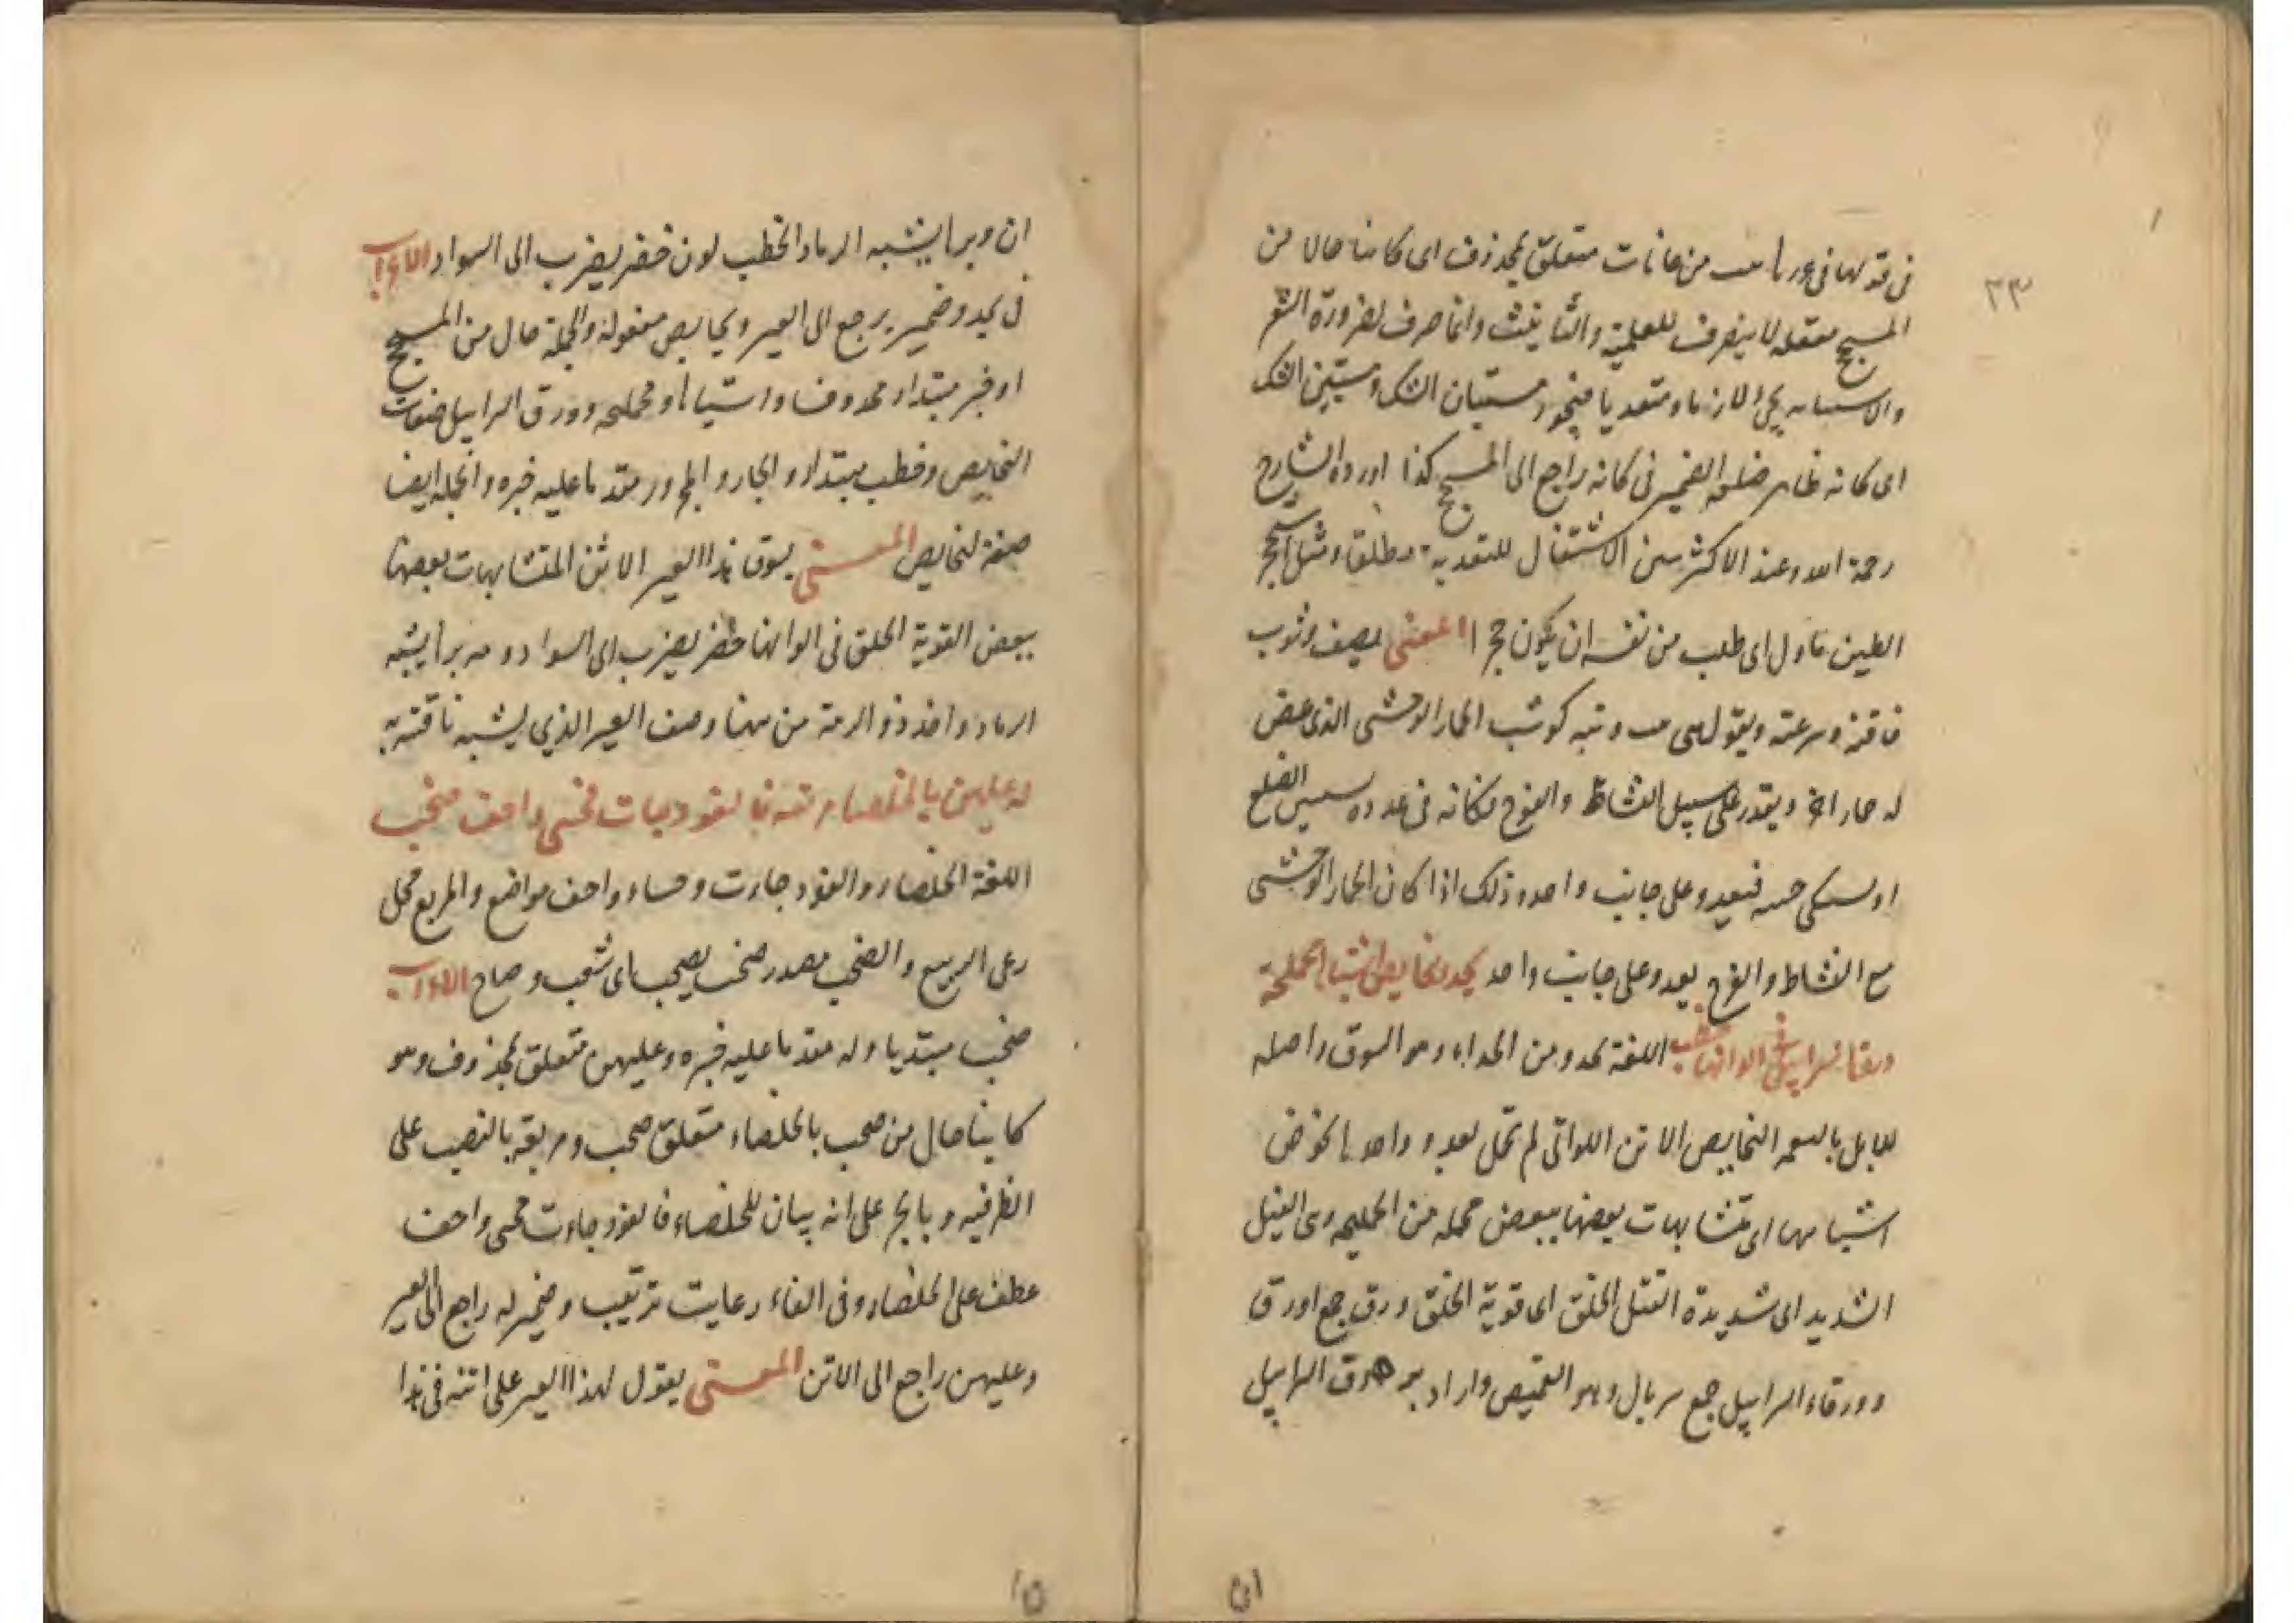 ٢٣
فى قولها فى عدوها من عانات متعلق بمحذوف اى كاينا حالا من
المسحج معقلة لا ينصرف للعلمية والتأنيث وانما صرف لضرورة الشعر
والاستبانه يجئ لازما ومتعديا فيجوز مستبان الشك ومستبين الشك
اى كانه ظاهر ضلعه الضمير فى كانه راجع الى المسحج كذا اورده الشارح
رحمة الله وعند الاكثر من الاشتغال للتعدية مطلقا ومثل استحجر
الطين ماول اى طلب من نفسه ان يكون حجرا المعنى يصف وثوب
ناقته وسرعته ويقول هى وثبه كوثب الحمار الوحشى الذى عض
له حمار اخر ويقدر على سبيل النشاط والفرح فكانه فى عدوه الضلع
او يشكى جنبه فيعدو على جانب واحد وذلك اذا كان الحمار الوحشى
مع النشاط والفرح يعدو على جانب واحد يحدو نحايص اشباها محملجة
ورقا السرابيل فى الوانها خطب اللغة يحدو من الحداء وهو السوق واصله
للابل النحايص الاتن اللواتى لم تحمل بعد و واحدها نحوص
اشباهها اى متشابهات بعضها ببعض محملجه من الحملجه وهى الفتل
الشديد اى شديدة الفتل الخلق اى قوية الخلق ورق جمع اورق
وورقاء السرابيل جمع سربال وهو القميص واراد بورق السرابيل
ان
ان وبرها يشبه الرماد الخطب لون خضر يضرب الى السواد الاعراب
فى يحدو ضمير يرجع الى العير ونحايص مفعوله والجملة حال من المسحج
او خبر مبتداء محذوف واشباها ومحملجه وورق السرابيل صفات
النحايص وخطب مبتداء والجار والمجرور مقدما عليه خبره والجمله ايضا
صفة لنحايص المعنى يسوق هذا العير الاتن المتشابهات بعضها
ببعض القوية الخلق فى الوانها خضر يضرب الى السواد وبرها يشبه
الرماد واخذ ذو الرمة من ههنا وصف العير الذي يشبه ناقته به
له عليهن بالخلصاء مرتعه فالفودجات فجنبى واحف صخب
اللغة الخلصاء والفودجات وحساء واحف مواضع والمربع محل
رعى الربيع والصخب مصدر صخب يصخب اى شغب وصاح الاعراب
صخب مبتديا وله مقدما عليه خبره وعليهن متعلق بمحذوف وهو
كاينا حال من صخب بالخلصاء متعلق صخب ومربعه بالنصب على
الظرفيه وبالجر على انه بيان للخلصاء فالفودجات فجنبى واحف
عطف على الخلصاء وفى الفاء رعايت ترتيب وضمير له راجع الى العير
وعليهن راجع الى الاتن المعنى يقول لهذا العير على اتنه فى هذا